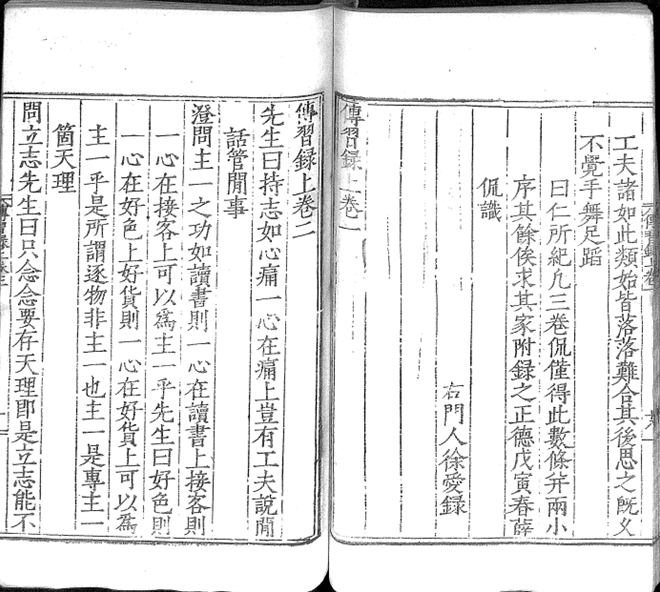 工夫諸如此類始皆落落難合其後思之既久
不覺手舞足蹈
曰仁所紀凡三卷侃僅得此數條并兩小
序其餘俟求其家附録之正德戊寅春薛
侃識
右門人徐愛録
傳習録上卷一
傳習録上卷二
先生曰持志如心痛一心在痛上豈有工夫說閒
話管閒事
澄問主一之功如讀書則一心在讀書上接客則
一心在接客上可以爲主一乎先生曰好色則
一心在好色上好貨則一心在好貨上可以爲
主一乎是所謂逐物非主一也主一是專主一
箇天理
問立志先生曰只念念要存天理即是立志能不